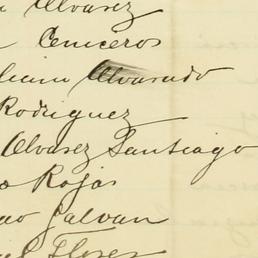 Alvarez
Ceniceros
Alvarado
Rodriguez
Alvarez Santiago
Rojas
Galvan
Flores